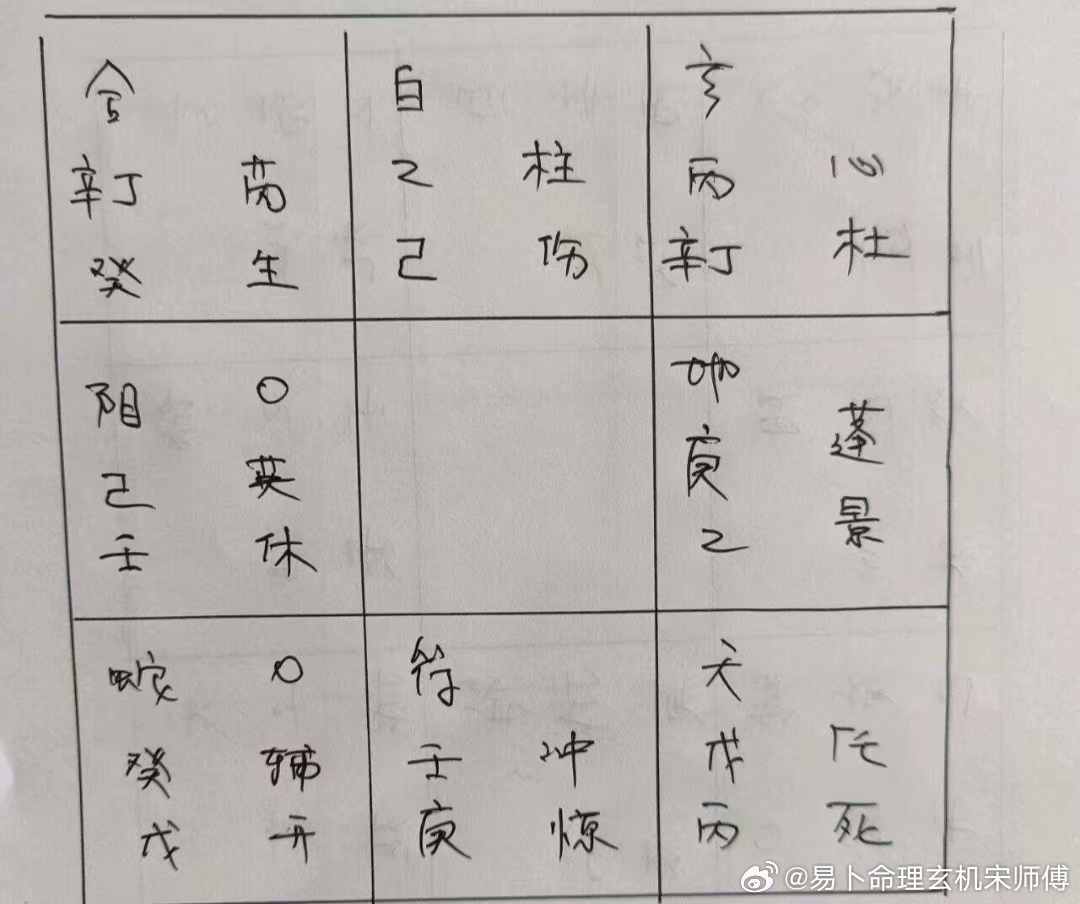 合
辛丁 芮
癸 生
白
乙 柱
己 伤
玄
丙 心
辛丁 杜
阴 O
己 英
壬 休
地
庚 蓬
乙 景
蛇 O
癸 辅
戊 开
符
壬 冲
庚 惊
天
戊 任
丙 死
@易卜命理玄机宋师傅